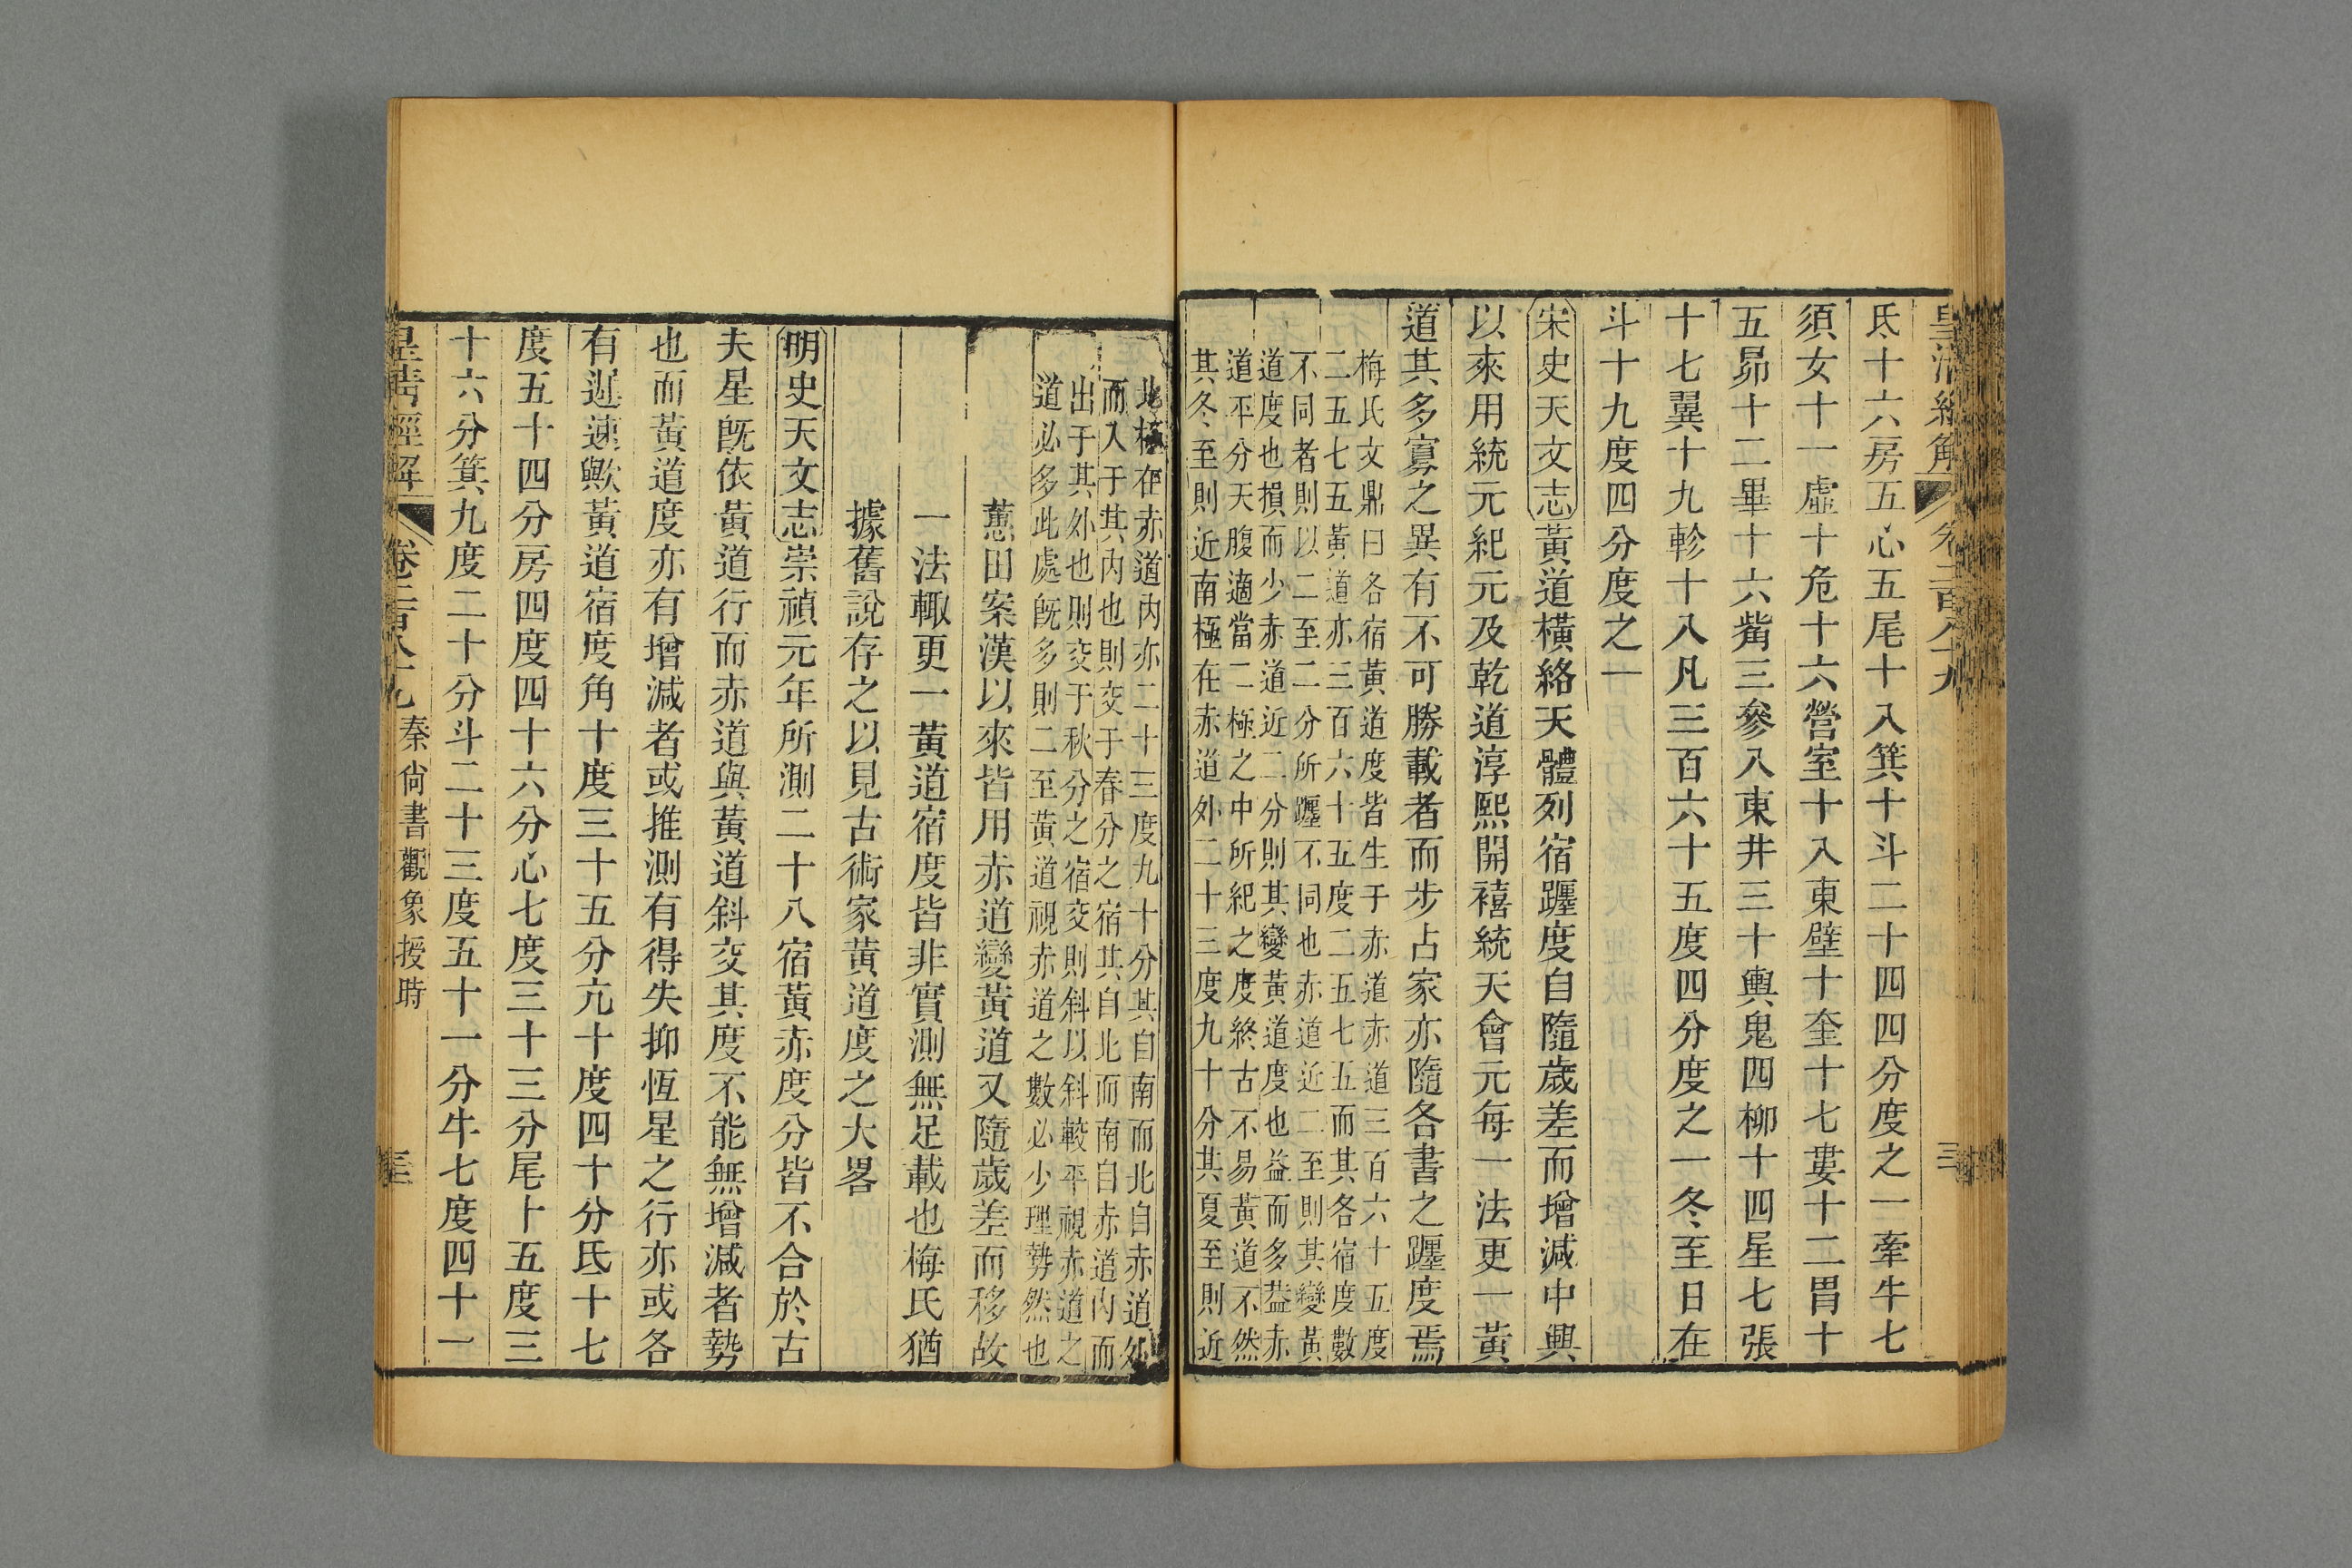 氐十六房五心五尾十八箕十斗二十四四分度之一牽牛七
須女十一虛十危十六營室十八東壁十奎十七婁十二胃十
五昴十二畢十六觜三參八東井三十輿鬼四柳十四星七張
十七翼十九軫十八凡三百六十五度四分度之一冬至日在
斗十九度四分度之一
宋史天文志黃道橫絡天體列宿躔度自隨歲差而增減中興
以來用統元紀元及乾道淳熙開禧統天會元每一法更一黃
道其多寡之異有不可勝載者而步占家亦隨各書之躔度焉
梅氏文鼎曰各宿黃道度皆生于赤道赤道三百六十五度
二五七五黃道亦三百六十五度二五七五而其各宿度數
不同者則以二至二分所躔不同也赤道近二至則其變黃
道度也損而少赤道近二分則其變黃道度也益而多葢赤
道平分天腹適當二極之中所紀之度終古不易黃道不然
其冬至則近南極在赤道外二十三度九十分其夏至則近
北極在赤道內亦二十三度九十分其自南而北自赤道外
而入于其內也則交于春分之宿其自北而南自赤道內而
出于其外也則交于秋分之宿交則斜以斜較平視赤道之
道必多此處旣多則二至黃道視赤道之數必少理勢然也
蕙田案漢以來皆用赤道變黃道又隨歲差而移故
一法輙更一黃道宿度皆非實測無足載也梅氏猶
據舊說存之以見古術家黃道度之大畧
明史天文志崇禎元年所測二十八宿黃赤度分皆不合於古
夫星旣依黃道行而赤道與黃道斜交其度不能無增減者勢
也而黃道度亦有增減者或推測有得失抑恆星之行亦或各
有遲速歟黃道宿度角十度三十五分亢十度四十分氐十七
度五十四分房四度四十六分心七度三十三分尾十五度三
十六分箕九度二十分斗二十三度五十一分牛七度四十一
皇清經解 卷二百八十九 秦尙書觀象授時